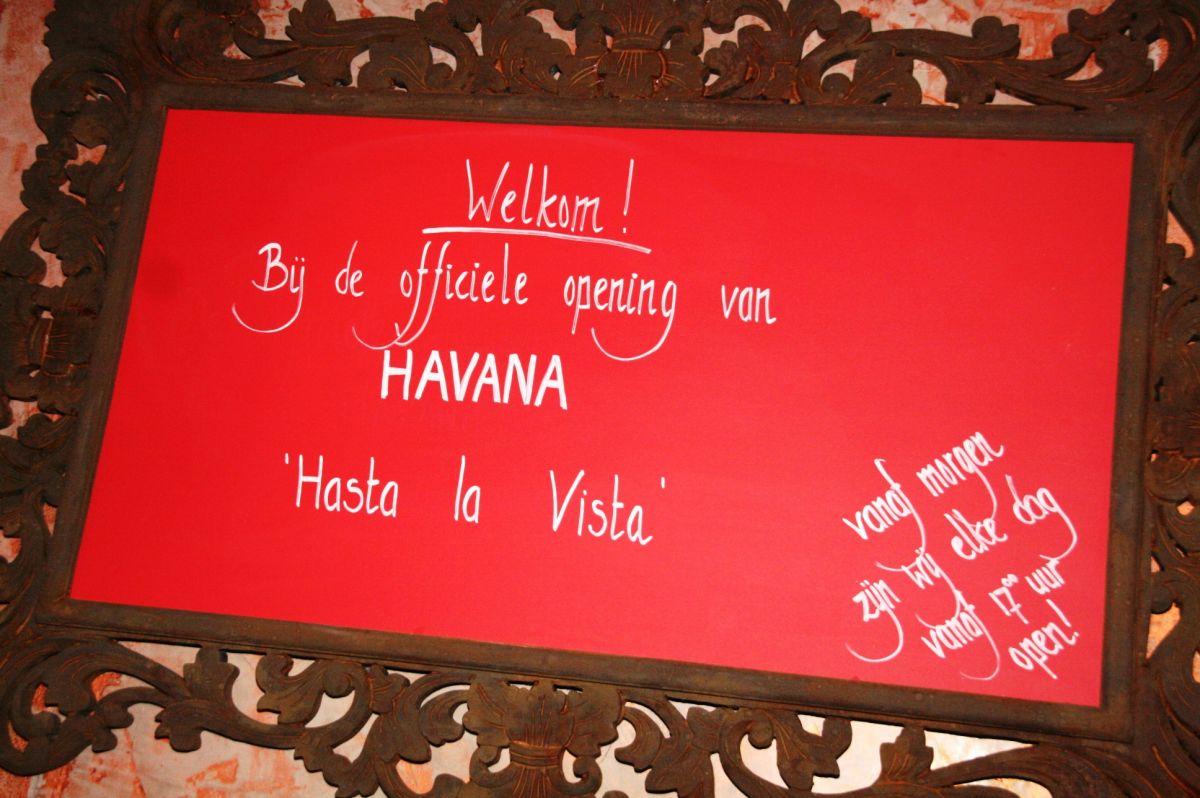 Welkom!
Bij de officiele opening van
HAVANA
'Hasta la Vista'
vanaf morgen
zijn wij elke dag
vanaf 17⁰⁰ uur
open!